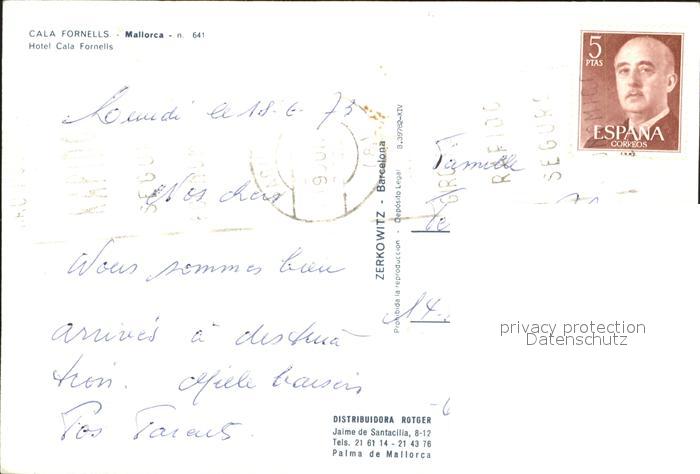 CALA FORNELLS - Mallorca - n. 641
Hotel Cala Fornells
5
PTAS
ESPAÑA
CORREOS
le 18.6.73
Nos chers
Nous sommes bien
arrivés à destina-
tion.
Vos Parents.
ZERKOWITZ - Barcelona
Prohibida la reproducción - Depósito Legal B.39782-XIV
Famille
14.
privacy protection
Datenschutz
DISTRIBUIDORA ROTGER
Jaime de Santacilia, 8-12
Tels. 21 61 14 - 21 43 76
Palma de Mallorca